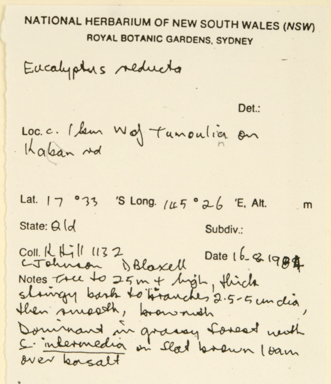 NATIONAL HERBARIUM OF NEW SOUTH WALES (NSW)
ROYAL BOTANIC GARDENS, SYDNEY
Eucalyptus reducta
Det.:
Loc. c. 1km W of Tumoulin on
Kaban rd
Lat. 17 °33 'S Long. 145 °26 'E, Alt. m
State: Qld Subdiv.:
Coll. K Hill 1132 Date 16-8-1984
L Johnson D Blaxell
Notes Tree to 25m high, thick
stringy bark to branches 2.5-5cm dia,
then smooth, brownish
Dominant in grassy forest with
E. intermedia on flat brown loam
over basalt